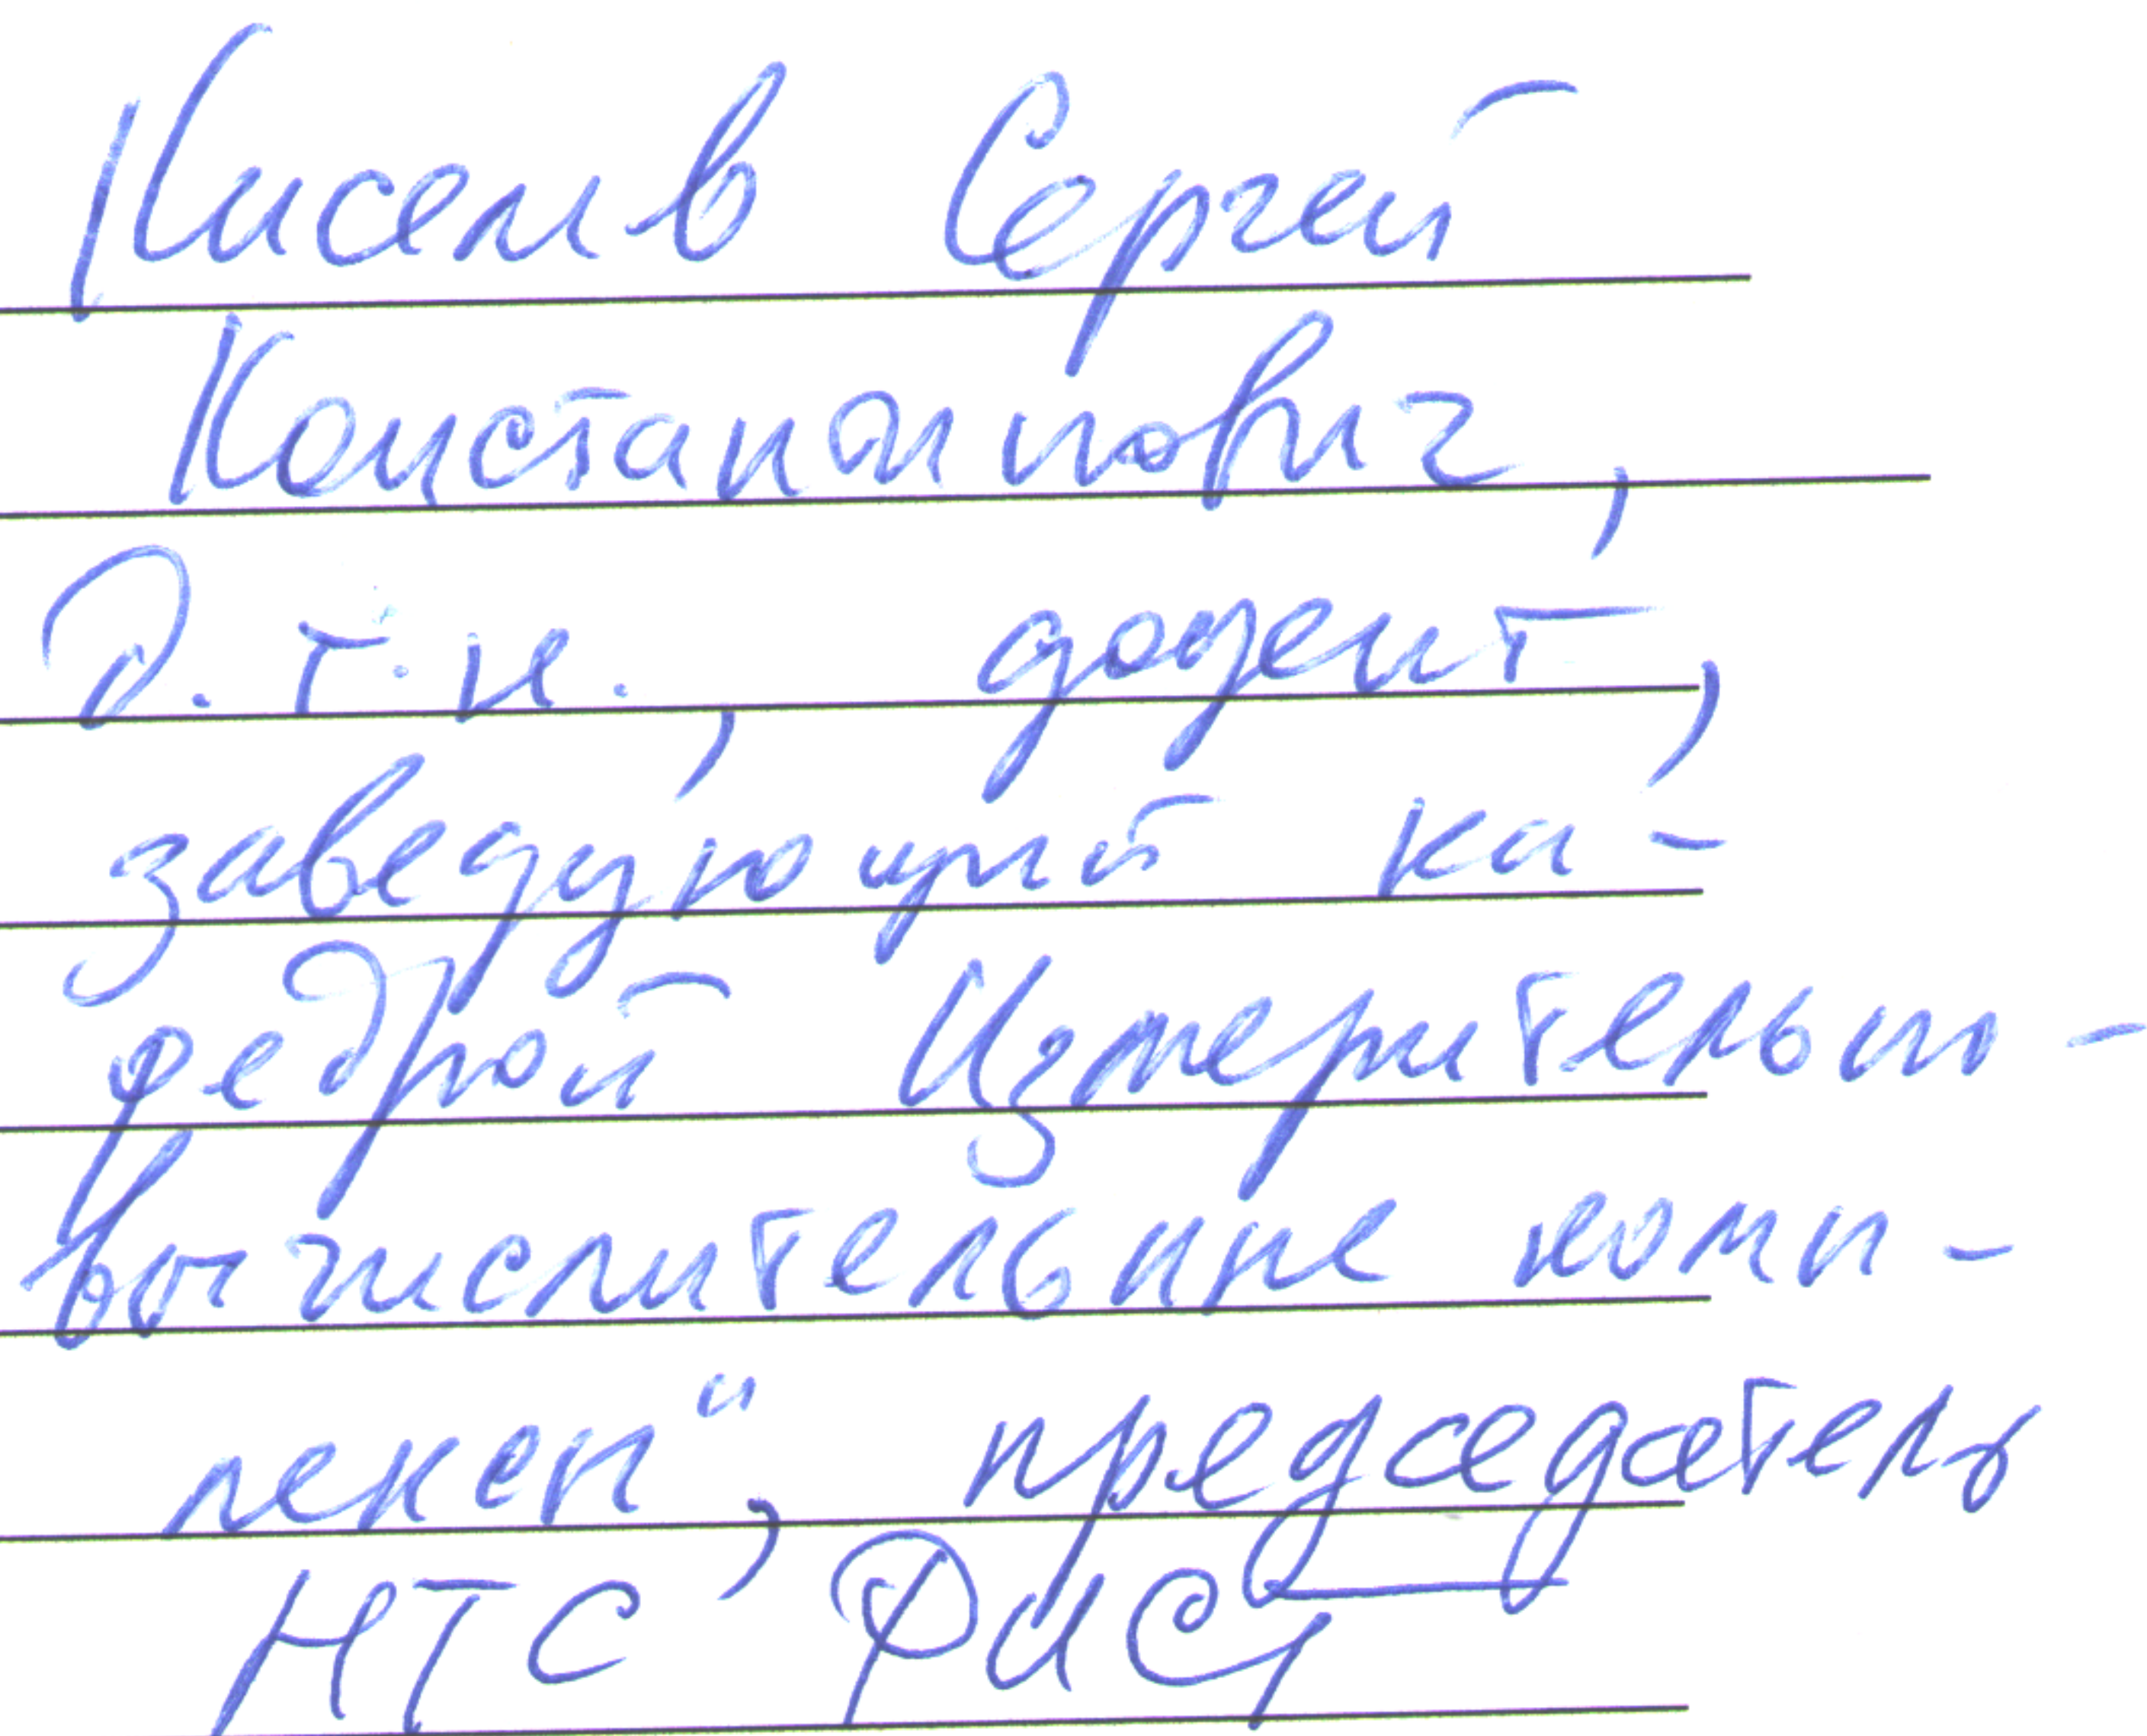 Киселев Сергей
Константинович,
д.т.н., доцент,
заведующий ка-
федрой Измерительно-
вычислительные комп-
лексы", председатель
НТС ФИСТ